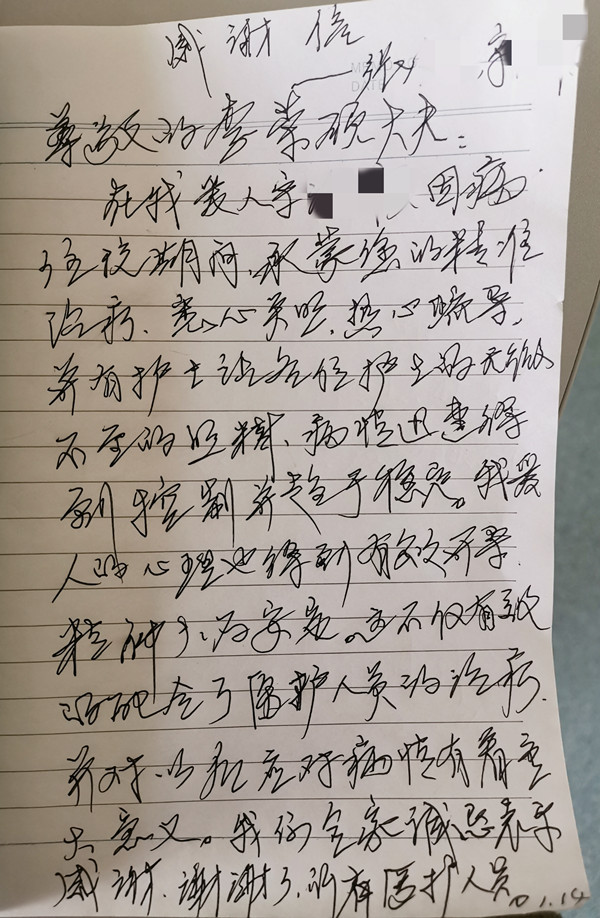 感谢信
张 京
ME
DATE
尊敬的李荣硕大夫:
在我爱人宁 因病
住院期间,承蒙您的精准
治疗、悉心关照、热心疏导,
并有护士诸各位护士的无微
不至的照料、病情迅速得
到控制并趋于稳定。我爱
人的心理也得到有效开导.
精神 为安定。这不仅有效
的配合了医护人员的治疗.
并对以后应对病情有着重
大意义。我们全家诚恳表示
感谢、谢谢了、所有医护人员
1.14